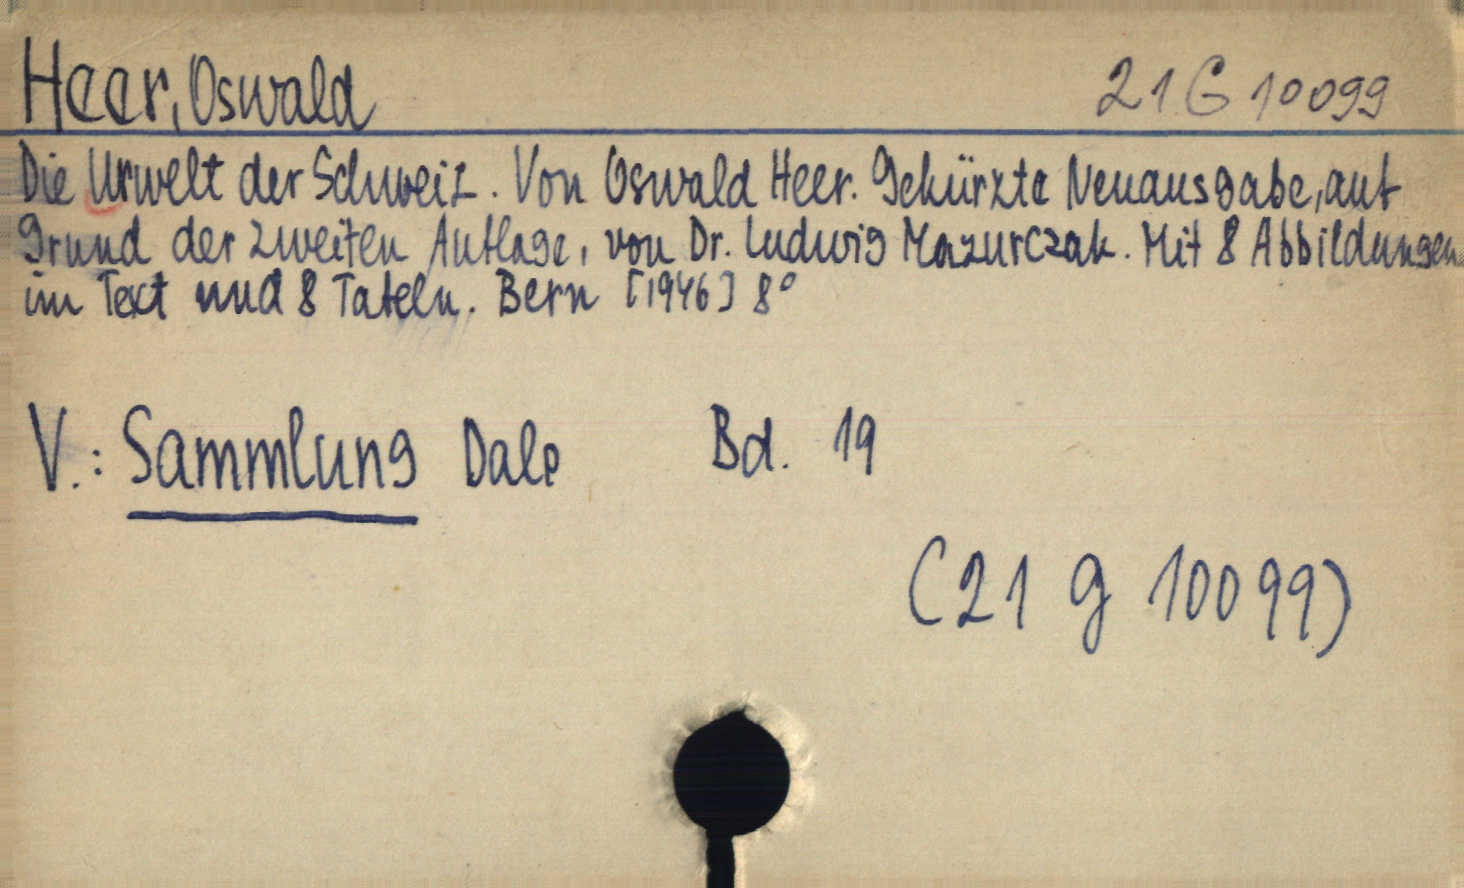 Heer, Oswald 21 G 10099
Die Urwelt der Schweiz. Von Oswald Heer. Gekürzte Neuausgabe, auf
Grund der zweiten Auflage, von Dr. Ludwig Mazurczak. Mit 8 Abbildungen
im Text und 8 Tafeln. Bern [1946] 8°
V.: Sammlung Dalp Bd. 19
(21 G 10099)